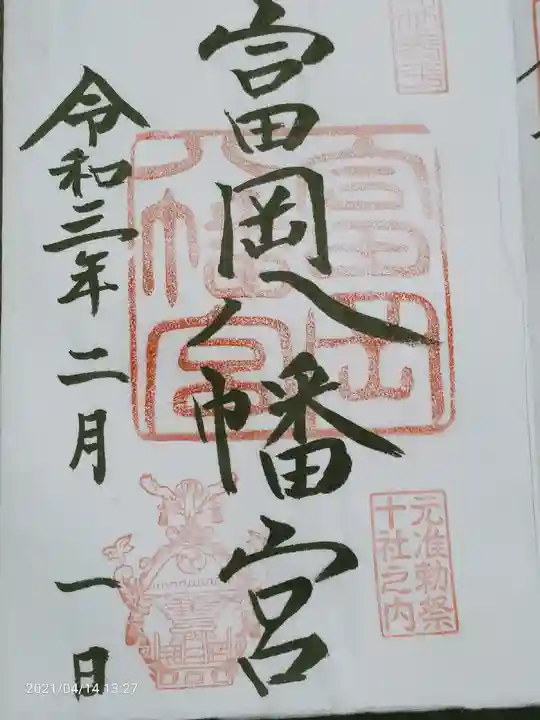 富岡八幡宮
元准勅祭
十社之内
富岡
八幡宮
令和三年二月一日
2021/04/14 13:27